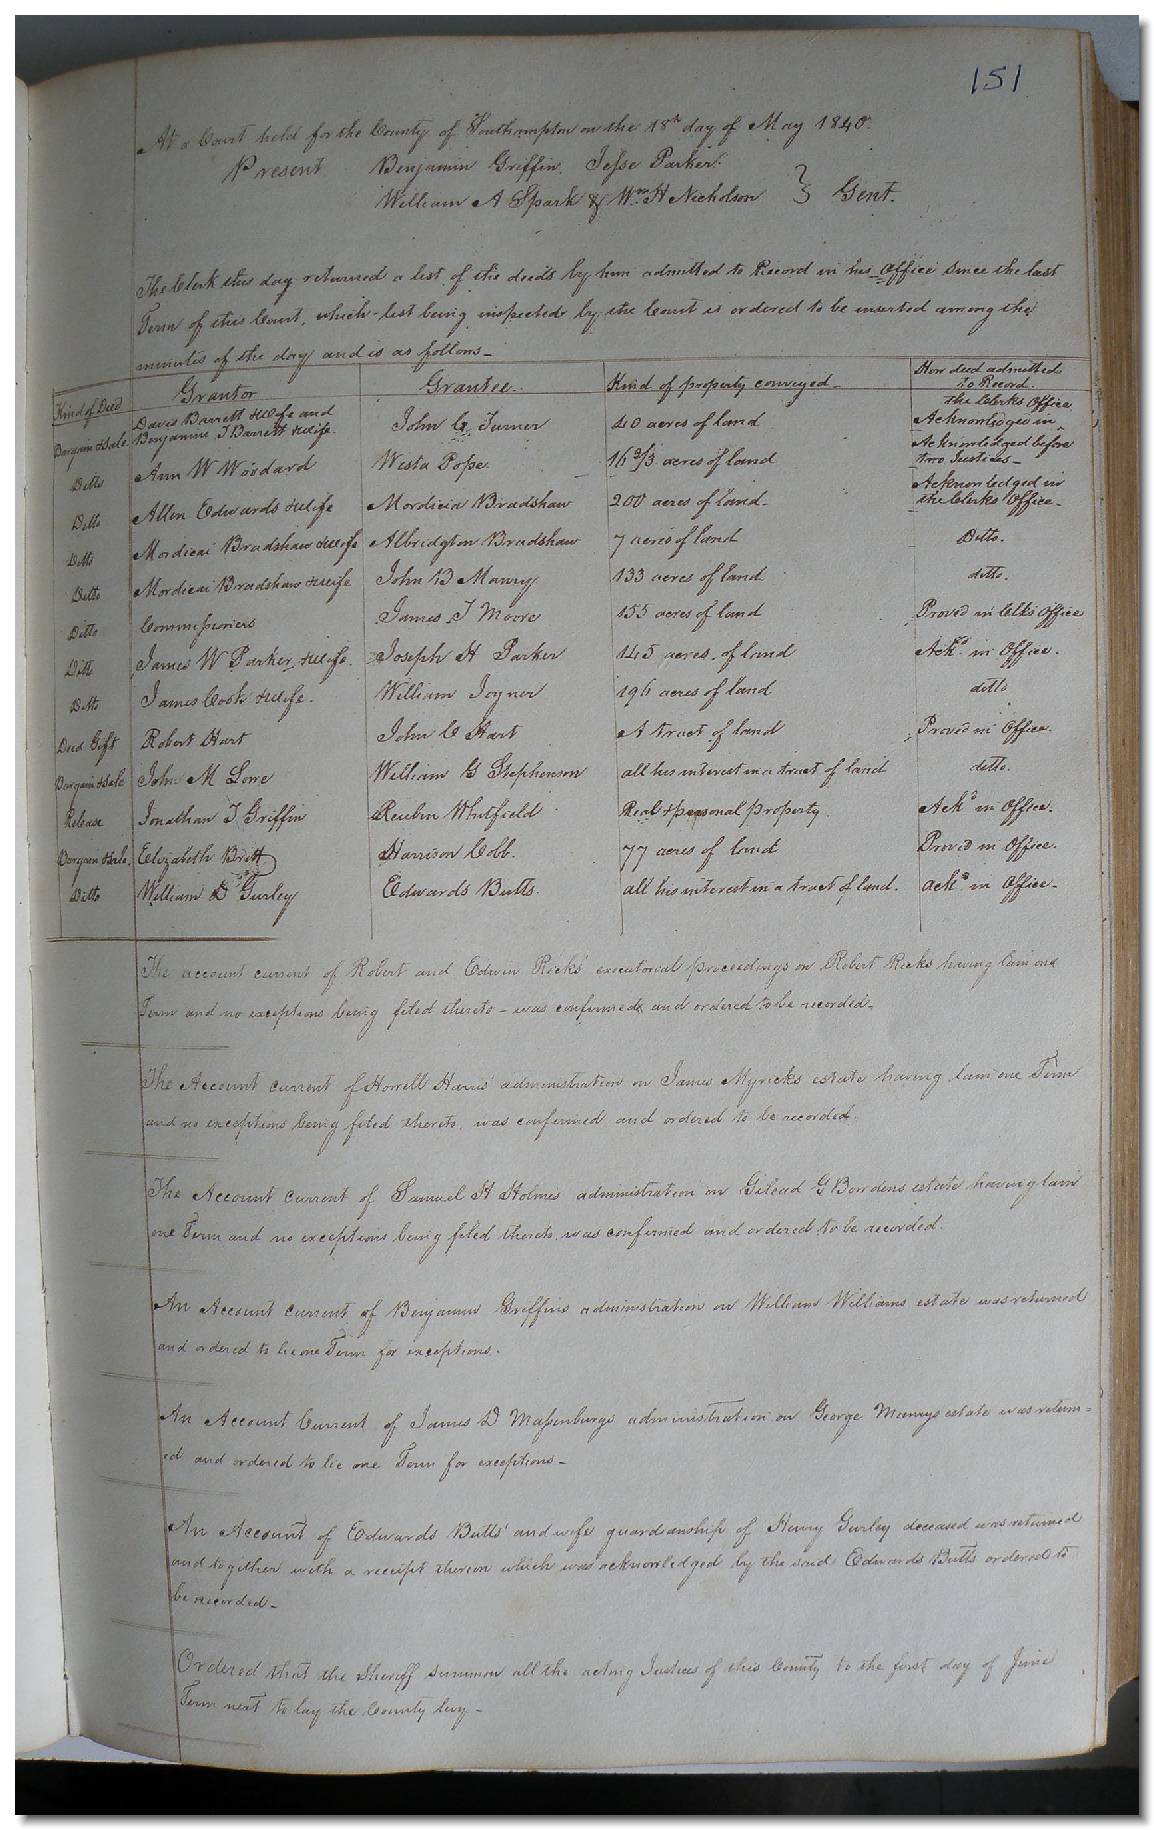 151
At a Court held for the County of Southampton on the 18th day of May 1840.
Present Benjamin Griffin, Jesse Parker
William A Spark & Wm H Nicholson } Gent.
The Clerk this day returned a list of the deeds by him admitted to Record in his Office since the last
Term of this Court, which list being inspected by the Court is ordered to be inserted among the
minutes of the day and is as follows-
Kind of Deed Grantor Grantee Kind of property conveyed- How deed admitted to Record.
Bargain & Sale Davis Barrett & wife and Benjamin T Barrett & wife John G Turner 40 acres of land Acknowledged in the Clerks Office
Ditto Ann W Woodard Westa Pope 16 2/3 acres of land Acknowledged before two Justices-
Ditto Allen Edwards & wife Mordicai Bradshaw 200 acres of land. Acknowledged in the Clerks Office-
Ditto Mordicai Bradshaw & wife Albridgton Bradshaw 7 acres of land Ditto.
Ditto Mordicai Bradshaw & wife John B Manry 133 acres of land ditto.
Ditto Commissioners James T Moore 155 acres of land Proved in Clks Office
Ditto James W Parker & wife Joseph H Parker 145 acres of land Ackd in Office.
Ditto James Cook & wife William Joyner 196 acres of land ditto
Deed Gift Robert Hart John C Hart A tract of land Proved in Office.
Bargain & Sale John M Lowe William G Stephenson all his interest in a tract of land ditto.
Release Jonathan T Griffin Reubin Whitfield Real & personal property Ackd in Office.
Bargain & Sale Elizabeth Britt Harrison Cobb. 77 acres of land Proved in Office.
Ditto William D Gurley Edwards Butts. all his interest in a tract of land. ackd in Office-
The account current of Robert and Edwin Ricks' executorial proceedings on Robert Ricks having lain one
Term and no exceptions being filed thereto - was confirmed and ordered to be recorded-
The Account current of Howell Harris' administration on James Myricks estate having lain one Term
and no exceptions being filed thereto, was confirmed and ordered to be recorded.
The Account current of Samuel H Holmes administration on Gilead G Bowdens estate having lain
one Term and no exceptions being filed thereto, was confirmed and ordered to be recorded.
An Account current of Benjamin Griffins administration on William Williams estate was returned
and ordered to lie one Term for exceptions.
An Account Current of James D Massenburgs administration on George Manrys estate was return=
ed and ordered to lie one Term for exceptions-
An Account of Edwards Butts' and wife guardianship of Henry Gurley deceased was returned
and together with a receipt thereon which was acknowledged by the said Edwards Butts ordered to
be recorded-
Ordered that the Sheriff summon all the acting Justices of this County to the first day of June
Term next to lay the County levy-